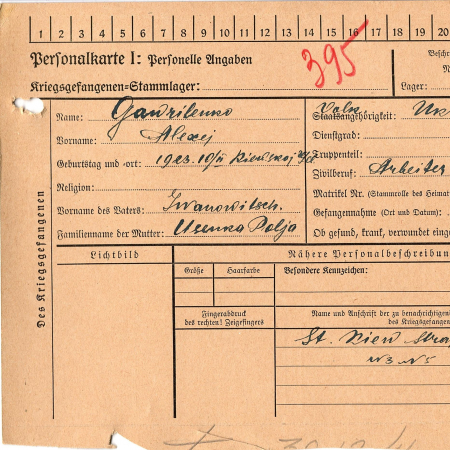 1 2 3 4 5 6 7 8 9 10 11 12 13 14 15 16 17 18 19 20
Personalkarte I: Personelle Angaben
395
Kriegsgefangenen-Stammlager:
Lager:
Des Kriegsgefangenen
Name: Gawrilenko
Vorname: Alexej
Geburtstag und -ort: 1923. 10/II Kiewskoj
Religion:
Vorname des Vaters: Iwanowitsch.
Familienname der Mutter: Usenko Polja
Volk
Staatsangehörigkeit: Uk
Dienstgrad:
Truppenteil:
Zivilberuf: Arbeiter
Matrikel Nr. (Stammrolle des Heimat
Gefangennahme (Ort und Datum):
Ob gesund, krank, verwundet einge
Lichtbild
Nähere Personalbeschreibu
Größe Haarfarbe
Besondere Kennzeichen:
Fingerabdruck
des rechten! Zeigefingers
Name und Anschrift der zu benachrichtigen
des Kriegsgefangen
St. Kiew Stra
N3 N5